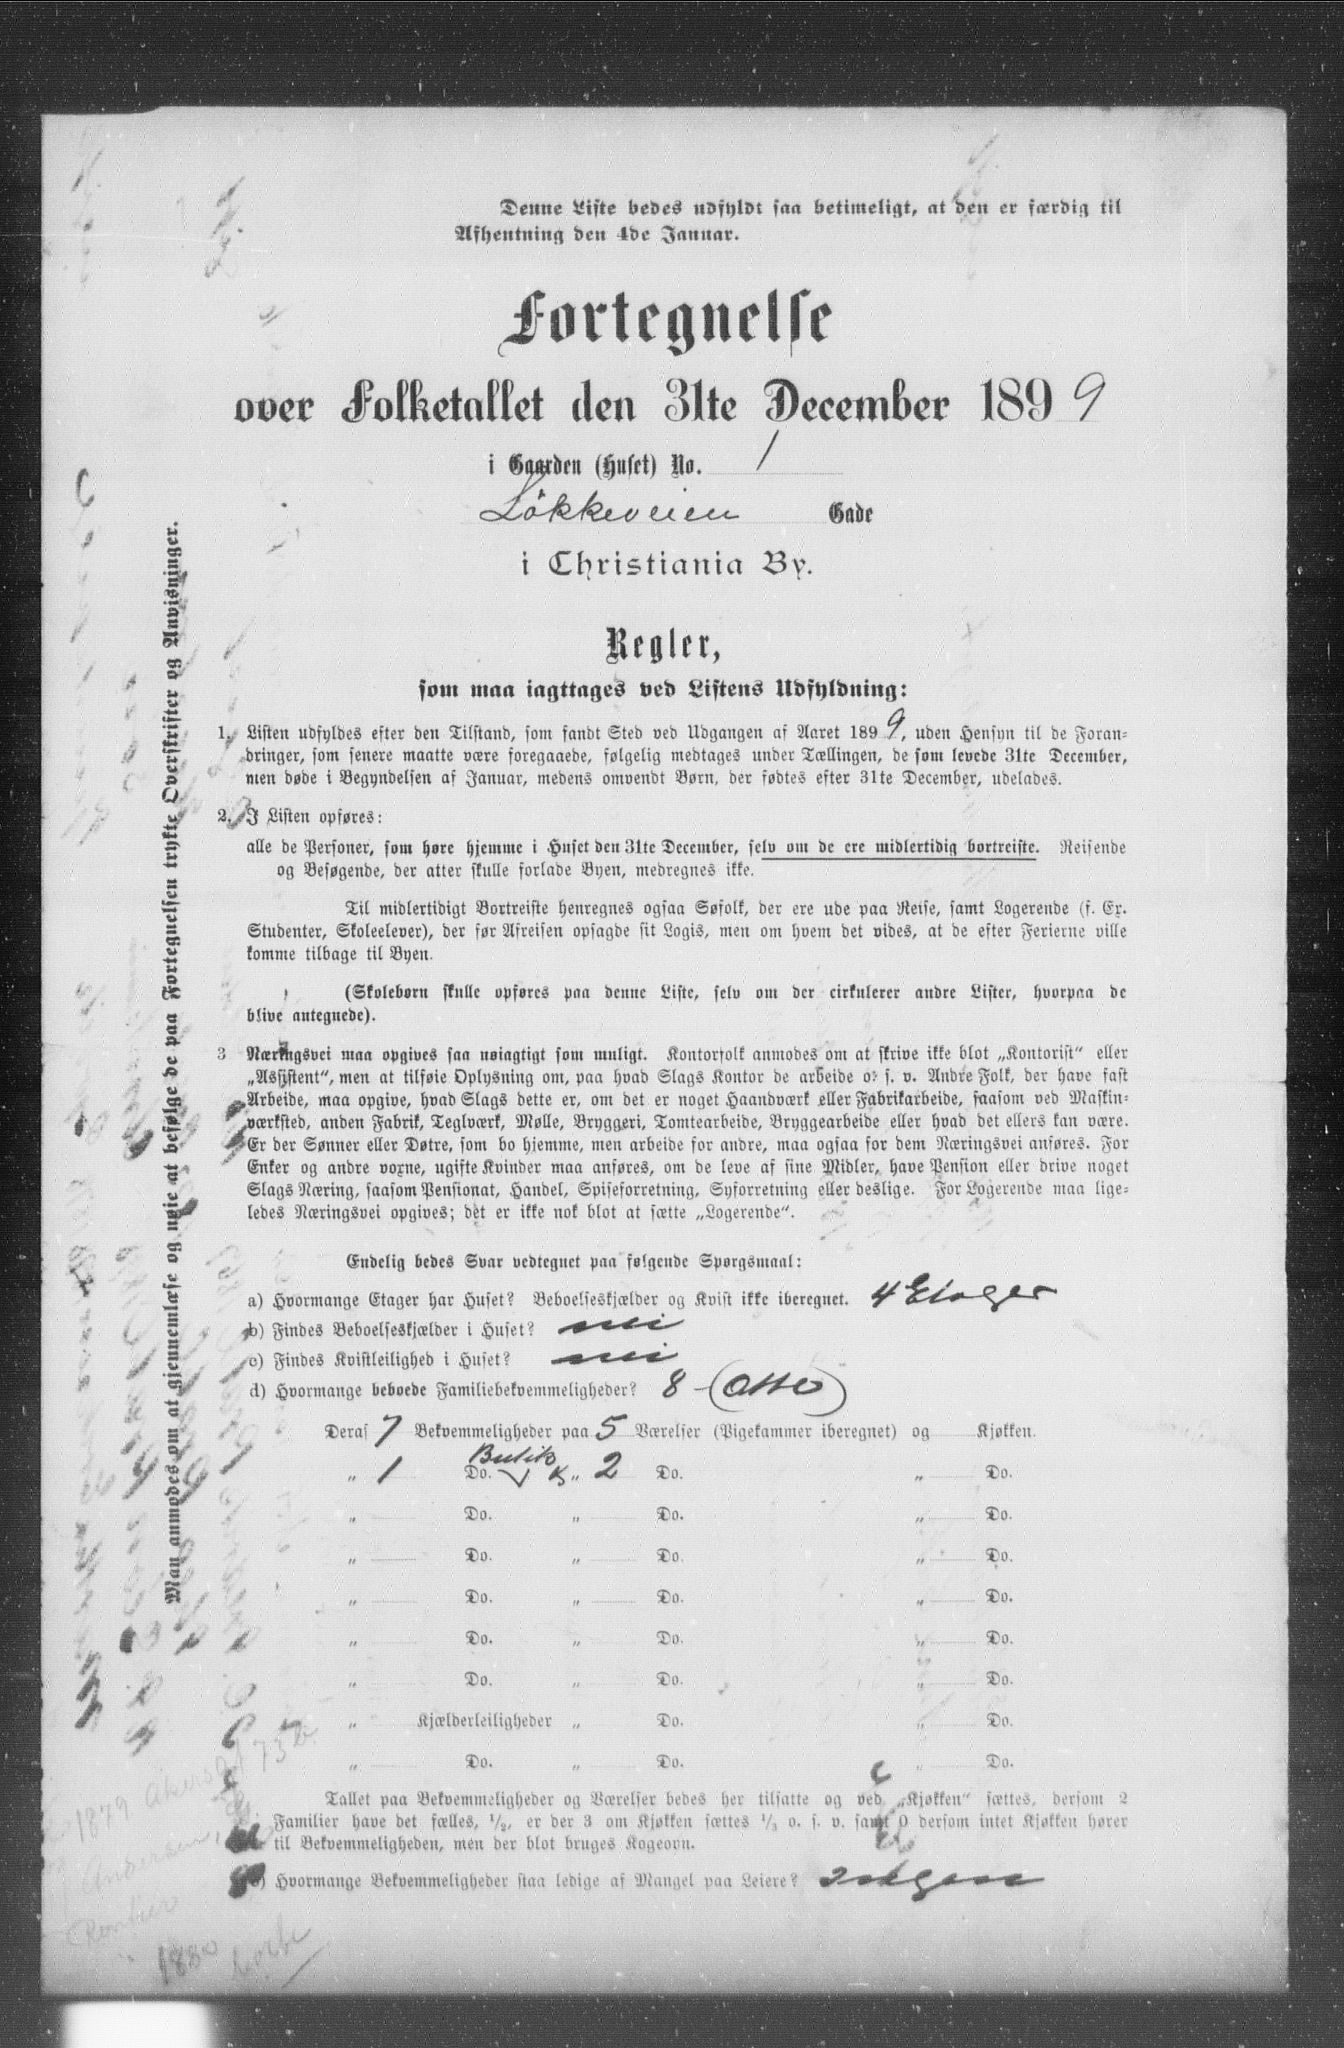 Denne Liste bedes udfyldt saa betimeligt, at den er færdig til
Afhentning den 4de Januar.
Fortegnelse
over Folketallet den 31te December 1899
i Gaarden (Huset) No. 1
Løkkeveien Gade
i Christiania By.
Regler,
som maa iagttages ved Listens Udfyldning:
1. Listen udfyldes efter den Tilstand, som fandt Sted ved Udgangen af Aaret 1899, uden Hensyn til de Foran-
dringer, som senere maatte være foregaaede, følgelig medtages under Tællingen, de som levede 31te December,
men døde i Begyndelsen af Januar, medens omvendt Børn, der fødtes efter 31te December, udelades.
2. I Listen opføres:
alle de Personer, som høre hjemme i Huset den 31te December, selv om de ere midlertidig bortreiste. Reisende
og Besøgende, der atter skulle forlade Byen, medregnes ikke.
Til midlertidigt Bortreiste henregnes ogsaa Søfolk, der ere ude paa Reise, samt Logerende (f. Ex.
Studenter, Skoleelever), der før Afreisen opsagde sit Logis, men om hvem det vides, at de efter Ferierne ville
komme tilbage til Byen.
(Skolebørn skulle opføres paa denne Liste, selv om der cirkulerer andre Lister, hvorpaa de
blive antegnede).
3 Næringsvei maa opgives saa nøiagtigt som muligt. Kontorfolk anmodes om at skrive ikke blot „Kontorist" eller
„Assistent", men at tilføie Oplysning om, paa hvad Slags Kontor de arbeide o. s. v. Andre Folk, der have fast
Arbeide, maa opgive, hvad Slags dette er, om det er noget Haandværk eller Fabrikarbeide, saasom ved Maskin-
værksted, anden Fabrik, Teglværk, Mølle, Bryggeri, Tomtearbeide, Bryggearbeide eller hvad det ellers kan være.
Er der Sønner eller Døtre, som bo hjemme, men arbeide for andre, maa ogsaa for dem Næringsvei anføres. For
Enker og andre voxne, ugifte Kvinder maa anføres, om de leve af sine Midler, have Pension eller drive noget
Slags Næring, saasom Pensionat, Handel, Spiseforretning, Syforretning eller deslige. For Logerende maa lige-
ledes Næringsvei opgives; det er ikke nok blot at sætte „Logerende".
Endelig bedes Svar vedtegnet paa følgende Spørgsmaal:
a) Hvormange Etager har Huset? Beboelseskjælder og Kvist ikke iberegnet. 4 Etager
b) Findes Beboelseskjælder i Huset? nei
c) Findes Kvistleilighed i Huset? nei
d) Hvormange beboede Familiebekvemmeligheder? 8 (Otte)
Deraf 7 Bekvemmeligheder paa 5 Værelser (Pigekammer iberegnet) og Kjøkken.
Butik
„ 1 Do. „ 2 Do. „ Do.
„ Do. „ Do. „ Do.
„ Do. „ Do. „ Do.
„ Do. „ Do. „ Do.
„ Do. „ Do. „ Do.
„ Do. „ Do. „ Do.
„ Kjælderleiligheder „ Do. „ Do.
„ Do. „ Do. „ Do.
Tallet paa Bekvemmeligheder og Værelser bedes her tilsatte og ved „Kjøkken" sættes, dersom 2
Familier have det fælles, 1/2, er der 3 om Kjøkken sættes 1/3 o. s. v. samt 0 dersom intet Kjøkken hører
til Bekvemmeligheden, men der blot bruges Kogeovn.
e) Hvormange Bekvemmeligheder staa ledige af Mangel paa Leiere? ingen
Man anmodes om at gjennemlæse og nøie at befølge de paa Fortegnelsen trykte Overskrifter og Anvisninger.
1879 Akersgt 73 b.
Andersen,
Rentier
1880